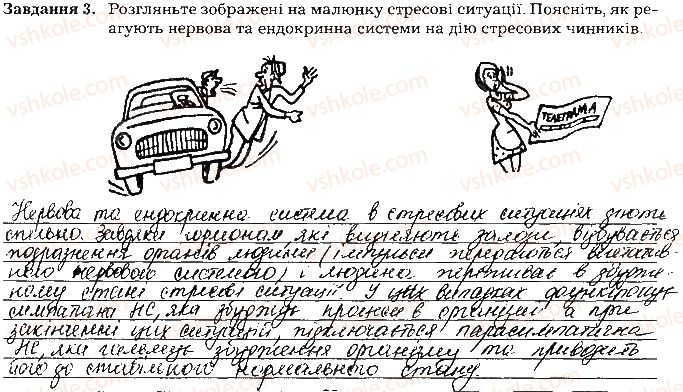 Завдання 3. Розгляньте зображені на малюнку стресові ситуації. Поясніть, як ре-
агують нервова та ендокринна системи на дію стресових чинників.
vshkole.com vshkole.com vshkole.com
ТЕЛЕГРАМА
Нервова та ендокринна система в стресових ситуаціях діють
спільно. Завдяки гормонам, які виділяють залози, відбувається
подразнення органів людини (імпульси передаються вегетатив-
ною нервовою системою) і людина переживає в збудже-
ному стані стресові ситуації. У цих випадках функціонує
симпатична НС, яка збуджує процеси в організмі, а при
закінченні цих ситуацій, підключається парасимпатична
НС, яка гальмує збудження організму та приводить
його до стабільного нормального стану